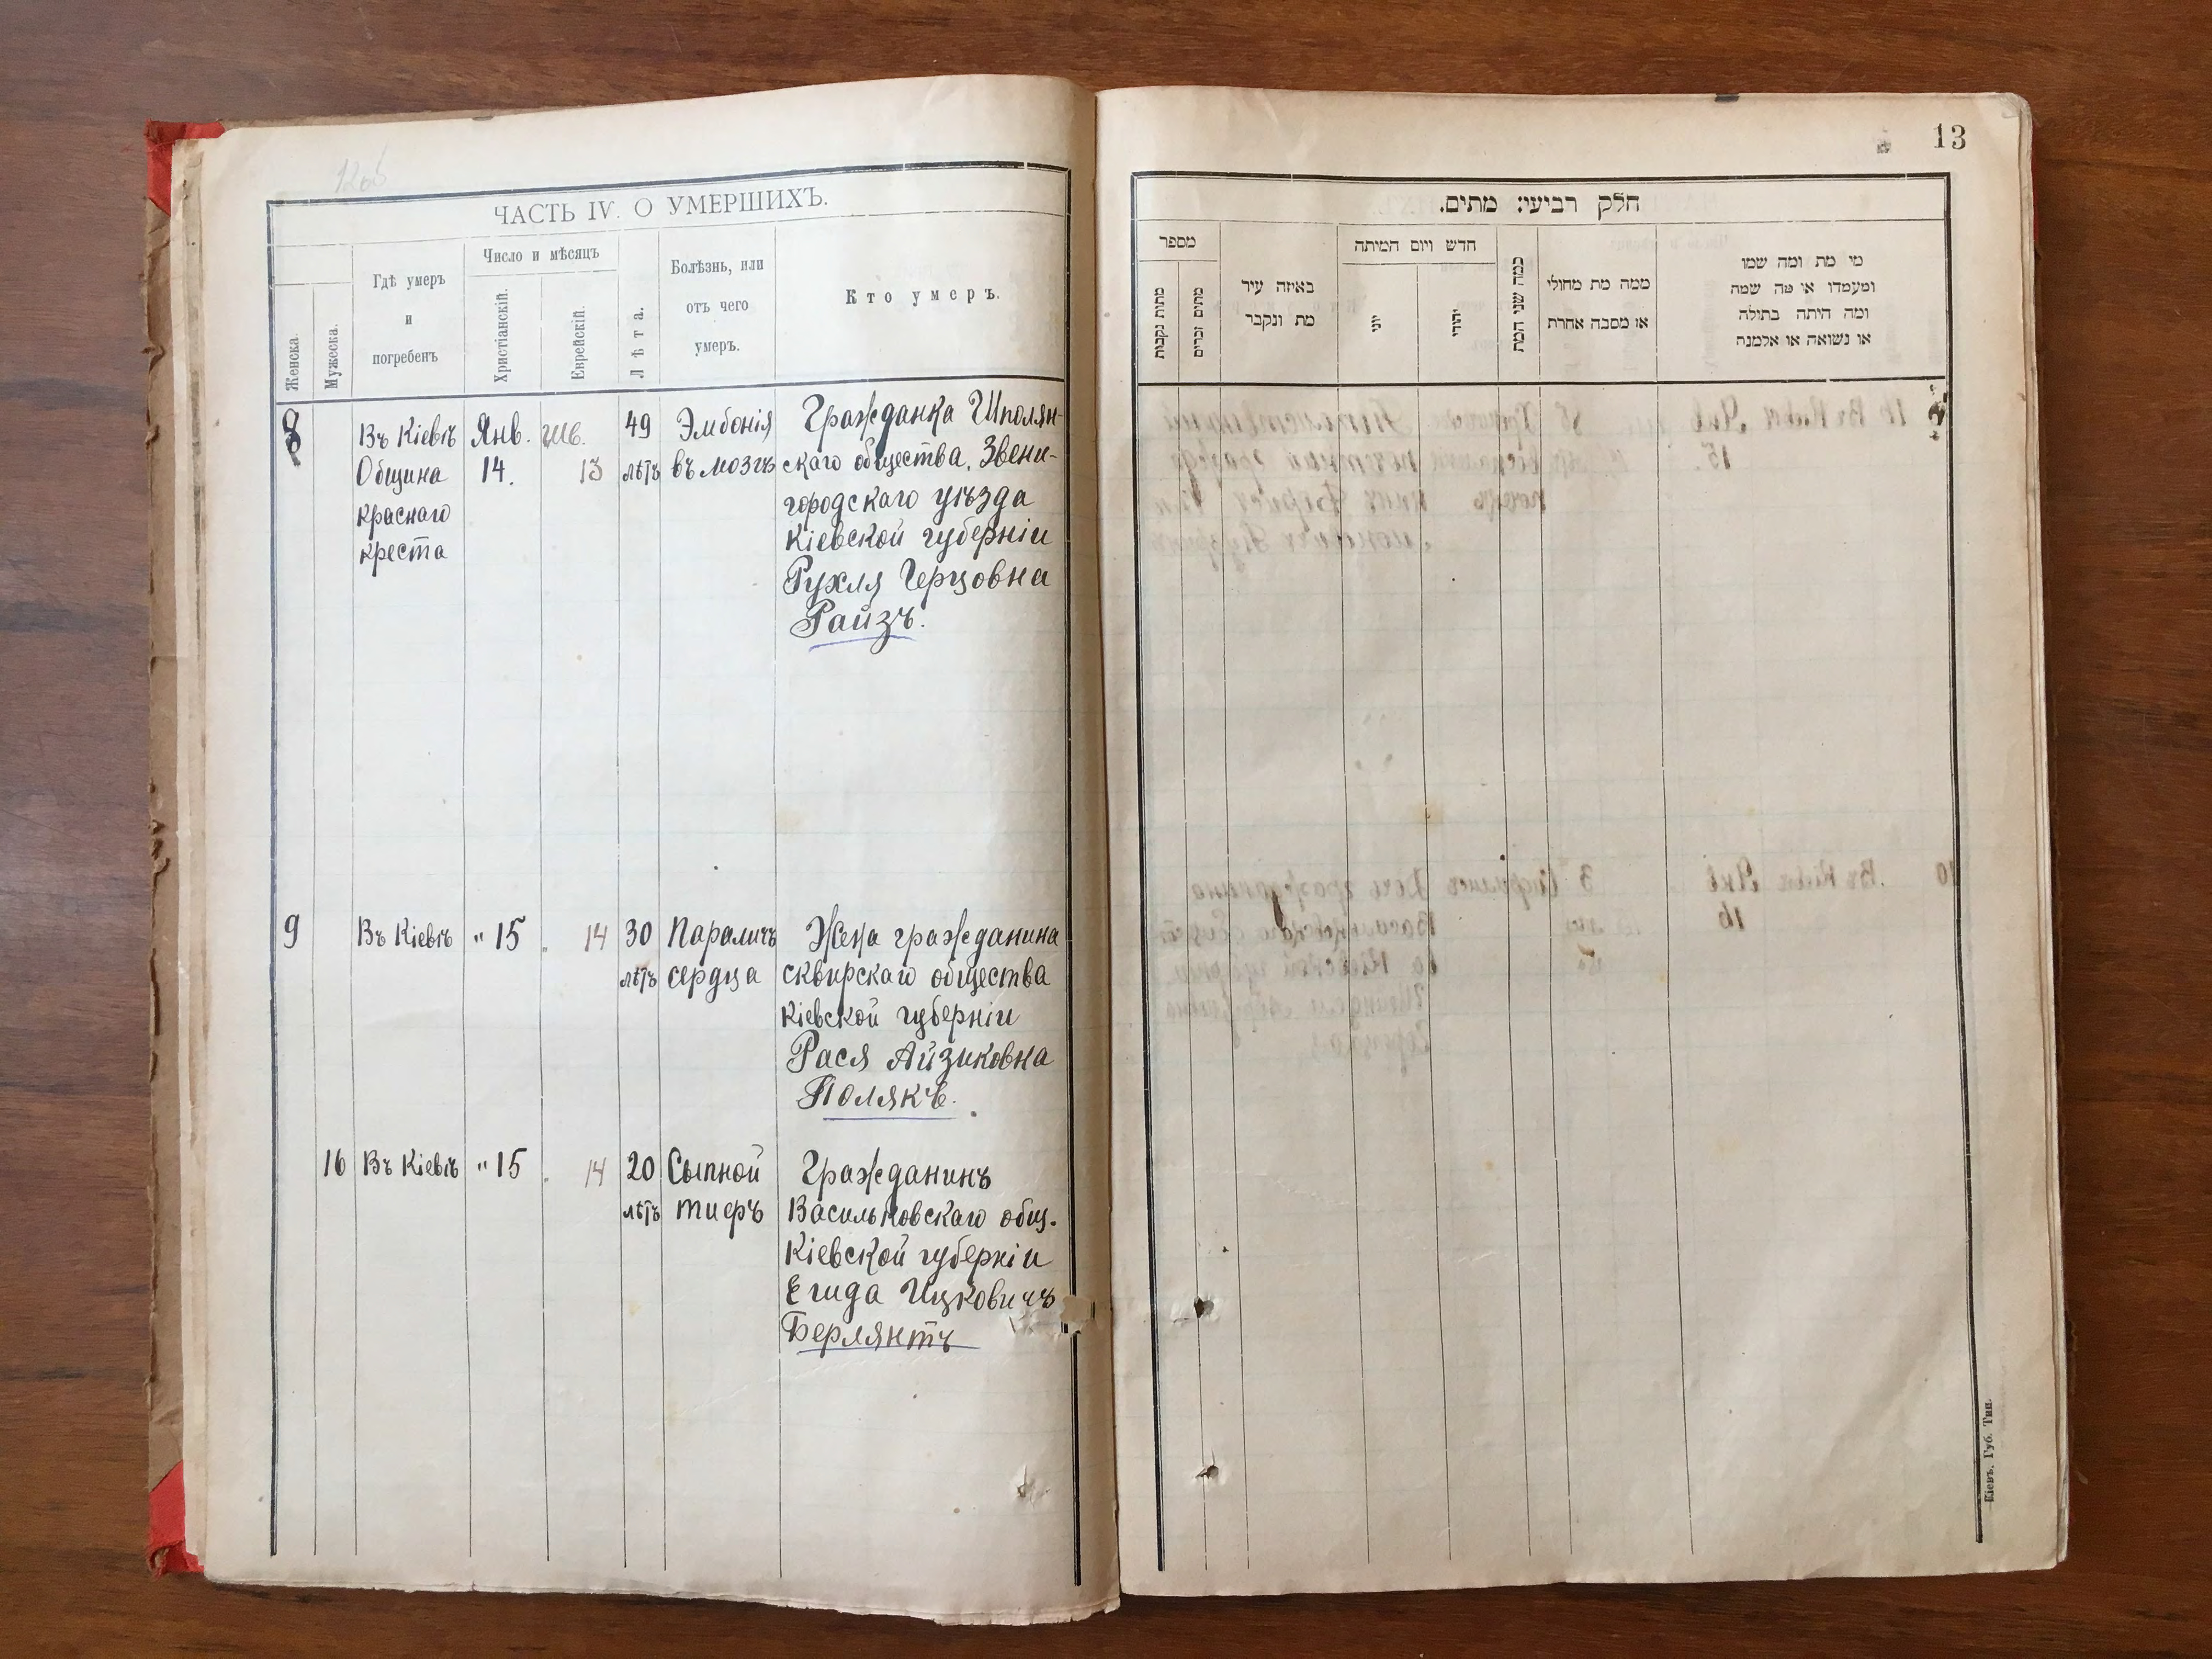 12об
ЧАСТЬ IV. О УМЕРШИХЪ.
Женска.
Мужеска.
Гдѣ умеръ
и
погребенъ
Число и мѣсяцъ
Христіанскій.
Еврейскій.
Лѣта.
Болѣзнь, или
отъ чего
умеръ.
Кто умеръ.
8
Въ Кіевѣ
Община
краснаго
креста
Янв.
14.
шв.
13
49
лѣтъ
Эмболія
въ мозгъ
Гражданка Шполян-
скаго общества, Звени-
городскаго уѣзда
Кіевской губерніи
Рухля Герцовна
Райзъ.
9
Въ Кіевѣ
" 15
14
30
лѣтъ
Параличъ
сердца
Жена гражданина
сквирскаго общества
Кіевской губерніи
Рася Айзиковна
Полякъ.
16
Въ Кіевѣ
" 15
14
20
лѣтъ
Сыпной
тифъ
Гражданинъ
Васильковскаго общ.
Кіевской губерніи
Егида Ицковичъ
Берлянтъ
13
חלק רביעי: מתים.
מספר
מתות נקבות
מתים זכרים
באיזה עיר
מת ונקבר
חדש ויום המיתה
יוני
יהודי
כמה שני המת
ממה מת מחולי
או מסבה אחרת
מי מת ומה שמו
ומעמדו או מה שמה
ומה היתה בתולה
או נשואה או אלמנה
Кіевъ. Губ. Тип.